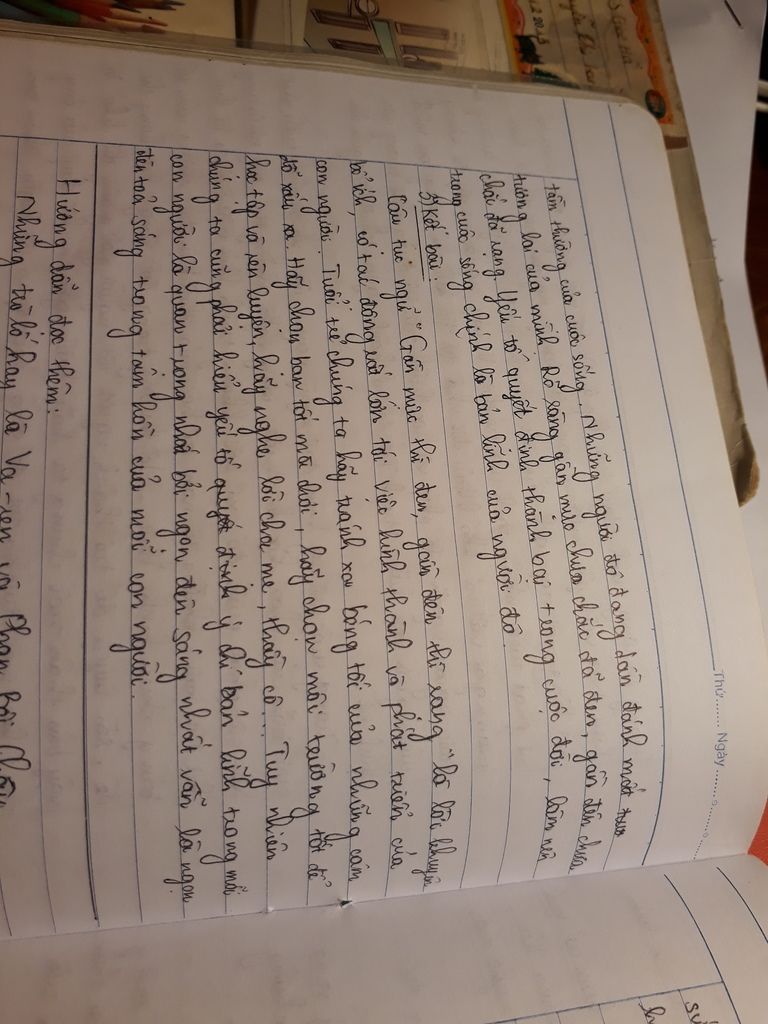 Thứ........ Ngày............
tầm thường của cuộc sống. Những người đó đang dần đánh mất
tương lai của mình. Rõ ràng gần mực chưa chắc đã đen, gần đèn chưa
chắc đã rạng. Yếu tố quyết định thành bại trong cuộc đời, làm nên
trong cuộc sống chính là bản lĩnh của người đó.
3) Kết bài:
Câu tục ngữ "Gần mực thì đen, gần đèn thì rạng" là lời khuyên
bổ ích, có tác động rất lớn tới việc hình thành và phát triển của
con người. Tuổi trẻ chúng ta hãy tránh xa bóng tối của những cám
dỗ xấu xa. Hãy chọn bạn tốt mà chơi, hãy chọn môi trường tốt để
học tập và rèn luyện, hãy nghe lời cha mẹ, thầy cô... Tuy nhiên
chúng ta cũng phải hiểu yếu tố quyết định ý chí bản lĩnh trong mỗi
con người là quan trọng nhất bởi ngọn đèn sáng nhất vẫn là ngọn
đèn toả sáng trong tâm hồn của mỗi con người.
Hướng dẫn đọc thêm:
Những trò lố hay là Va-ren và Phan Bội Châu